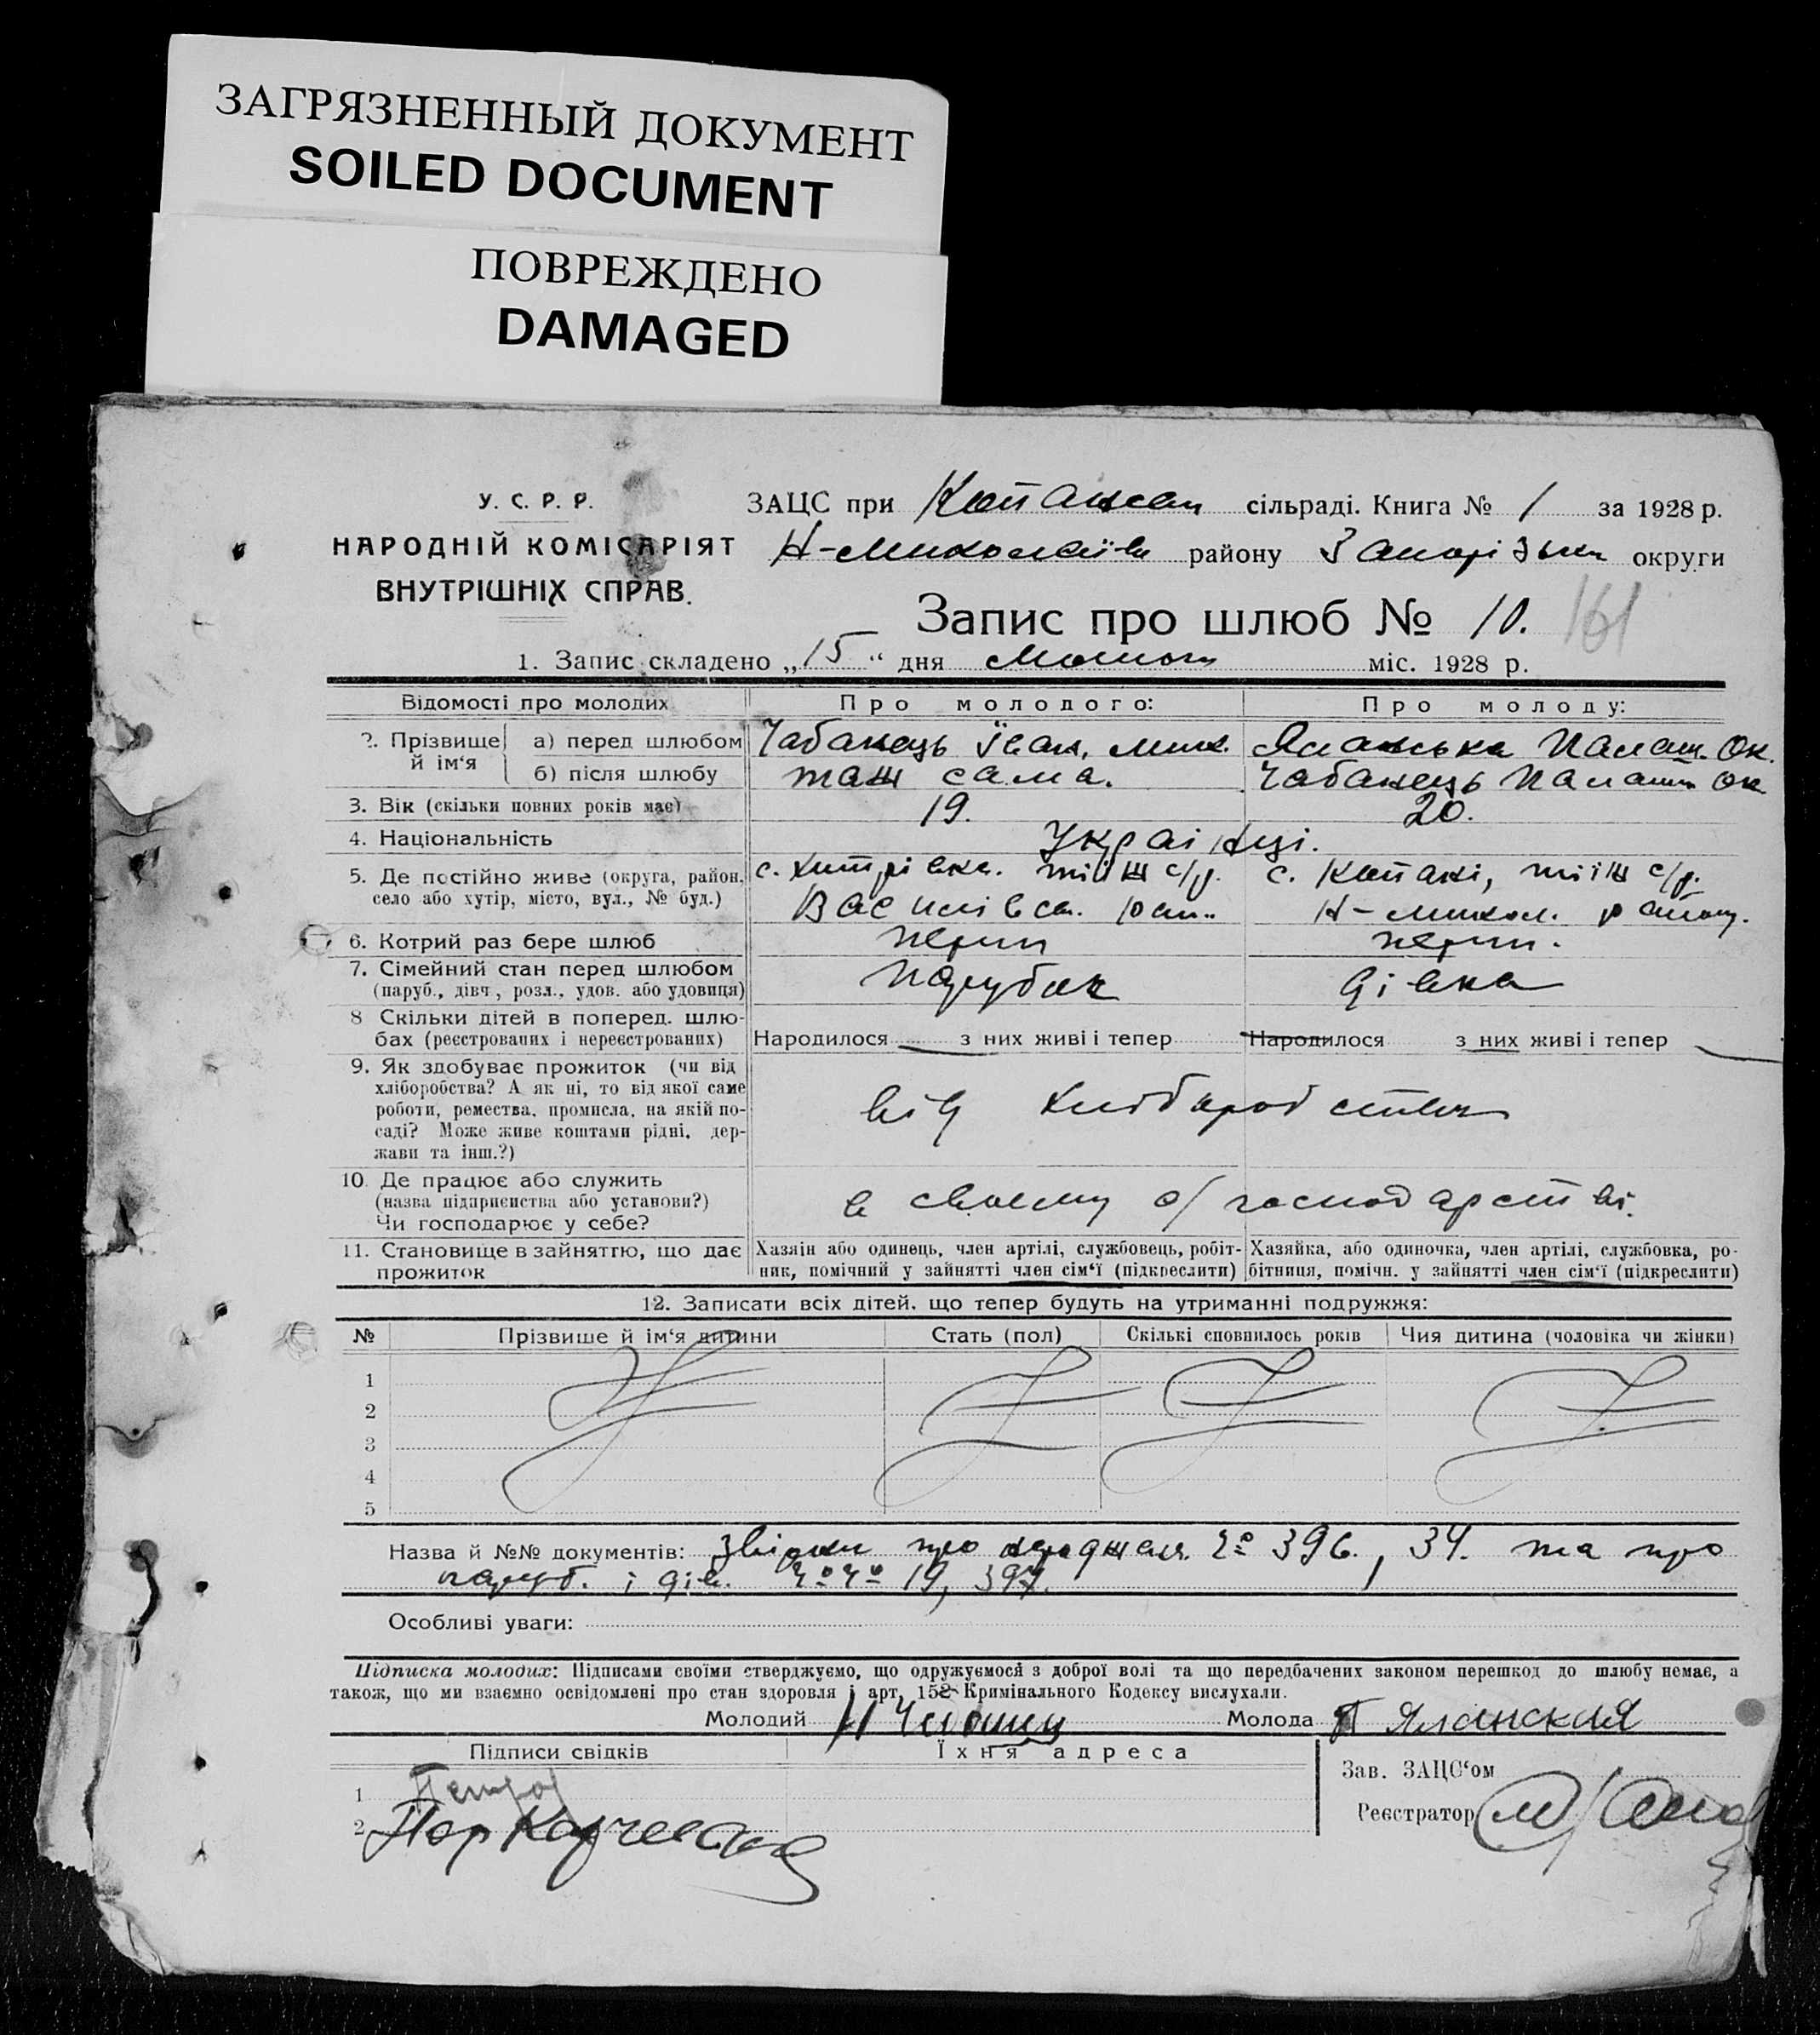 ЗАГРЯЗНЕННЫЙ ДОКУМЕНТ
SOILED DOCUMENT
ПОВРЕЖДЕНО
DAMAGED
У. С. Р. Р.
НАРОДНІЙ КОМІСАРІЯТ
ВНУТРІШНІХ СПРАВ.
ЗАЦС при сільраді. Книга № 1 за 1928 р.
Н-Миколаїв району Запорізьк округи
Запис про шлюб № 10. 161
1. Запис складено „15“ дня Лютого міс. 1928 р.
Відомості про молодих Про молодого: Про молоду:
2. Прізвище й ім‘я
а) перед шлюбом Чабанець Іван, Мик. Яланська Палаш. Ок.
б) після шлюбу таж сама. Чабанець Палаш Ок.
3. Вік (скільки повних років має) 19. 20.
4. Національність Українці.
5. Де постійно живе (округа, район, с. тіїж с/р. с. тіїж с/р.
село або хутір, місто, вул., № буд.) Василівськ. рай. Н-Микол. району.
6. Котрий раз бере шлюб перш перш.
7. Сімейний стан перед шлюбом парубок дівка
(паруб., дівч., розл., удов. або удовиця)
8 Скільки дітей в поперед. шлю-
бах (реєстрованих і нереєстрованих) Народилося з них живі і тепер Народилося з них живі і тепер
9. Як здобуває прожиток (чи від
хліборобства? А як ні, то від якої саме
роботи, ремества, промисла, на якій по-
саді? Може живе коштами рідні, дер-
жави та інш.?)
від хліборобства
10. Де працює або служить
(назва підприємства або установи?)
Чи господарює у себе?
в своему с/господарстві.
11. Становище в зайняттю, що дає
прожиток
Хазяїн або одинець, член артілі, службовець, робіт-
ник, помічний у зайнятті член сім‘ї (підкреслити)
Хазяйка, або одиночка, член артілі, службовка, ро-
бітниця, помічн. у зайнятті член сім‘ї (підкреслити)
12. Записати всіх дітей, що тепер будуть на утриманні подружжя:
№ Прізвище й ім‘я дитини Стать (пол) Скількі сповнилось років Чия дитина (чоловіка чи жінки)
1
2
3
4
5
Назва й №№ документів: Звідки про народжен. № 396., 34. та про
паруб. і дів. №№ 19, 397.
Особливі уваги:
Підписка молодих: Підписами своїми стверджуємо, що одружуємося з доброї волі та що передбачених законом перешкод до шлюбу немає, а
також, що ми взаємно освідомлені про стан здоровля і арт. 152 Кримінального Кодексу вислухали.
Молодий Молода П Яланская
Підписи свідків Їхня адреса
1
2
Зав. ЗАЦС‘ом
Реєстратор